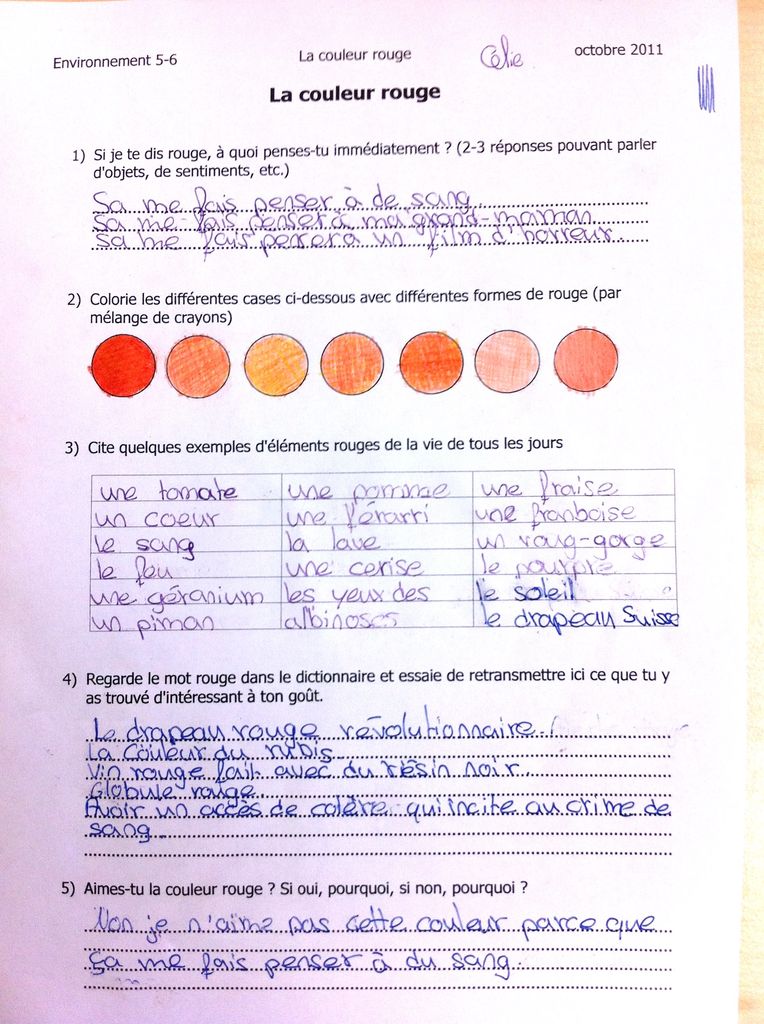 Environnement 5-6 La couleur rouge Célie octobre 2011
La couleur rouge
1) Si je te dis rouge, à quoi penses-tu immédiatement ? (2-3 réponses pouvant parler
d'objets, de sentiments, etc.)
Sa me fais penser à de sang
Sa me fais penser à ma grand-maman
Sa me fais penser à un film d'horreur
2) Colorie les différentes cases ci-dessous avec différentes formes de rouge (par
mélange de crayons)
3) Cite quelques exemples d'éléments rouges de la vie de tous les jours
une tomate une pomme une fraise
un coeur une férarri une franboise
le sang la lave un roug-gorge
le feu une cerise le pourpre
une géranium les yeux des le soleil
un piman albinoses le drapeau Suisse
4) Regarde le mot rouge dans le dictionnaire et essaie de retransmettre ici ce que tu y
as trouvé d'intéressant à ton goût.
Le drapeau rouge révolutionnaire.
La Couleur du rubis
Vin rouge fait avec du résin noir
Globule rouge
Avoir un accès de colère qui incite au crime de
sang
5) Aimes-tu la couleur rouge ? Si oui, pourquoi, si non, pourquoi ?
Non je n'aime pas cette couleur parce que
ça me fais penser à du sang.